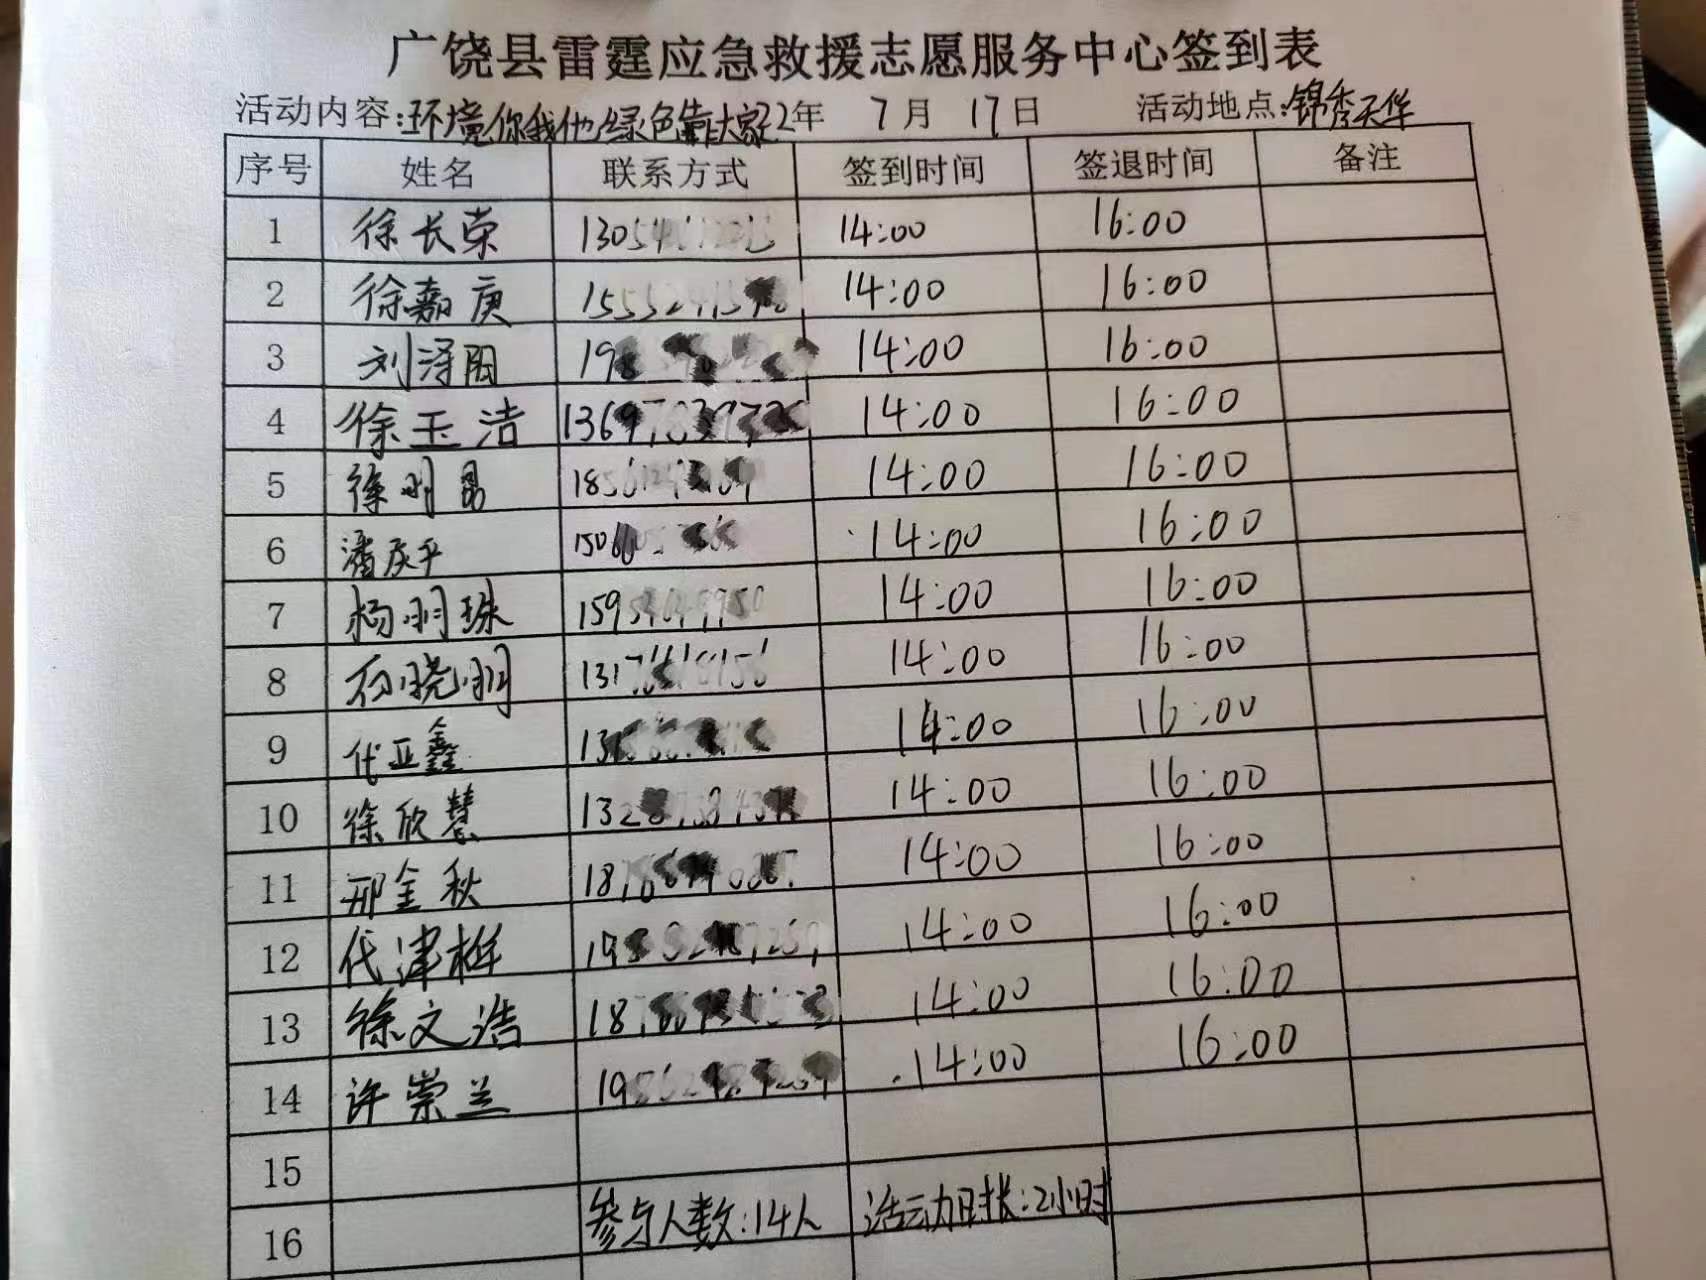 广饶县雷霆应急救援志愿服务中心签到表
活动内容:环境你我他绿色靠大家22年 7月 17日 活动地点:锦秀天华
序号 姓名 联系方式 签到时间 签退时间 备注
1 徐长荣 14:00 16:00
2 徐嘉庚 14:00 16:00
3 刘泽阳 14:00 16:00
4 徐玉洁 14:00 16:00
5 徐明昌 14:00 16:00
6 潘庆平 14:00 16:00
7 杨明珠 14:00 16:00
8 石晓明 14:00 16:00
9 代亚鑫 14:00 16:00
10 徐欣慧 14:00 16:00
11 邢金秋 14:00 16:00
12 代津桦 14:00 16:00
13 徐文浩 14:00 16:00
14 许崇兰 14:00 16:00
15
16 参与人数:14人 活动时长:2小时